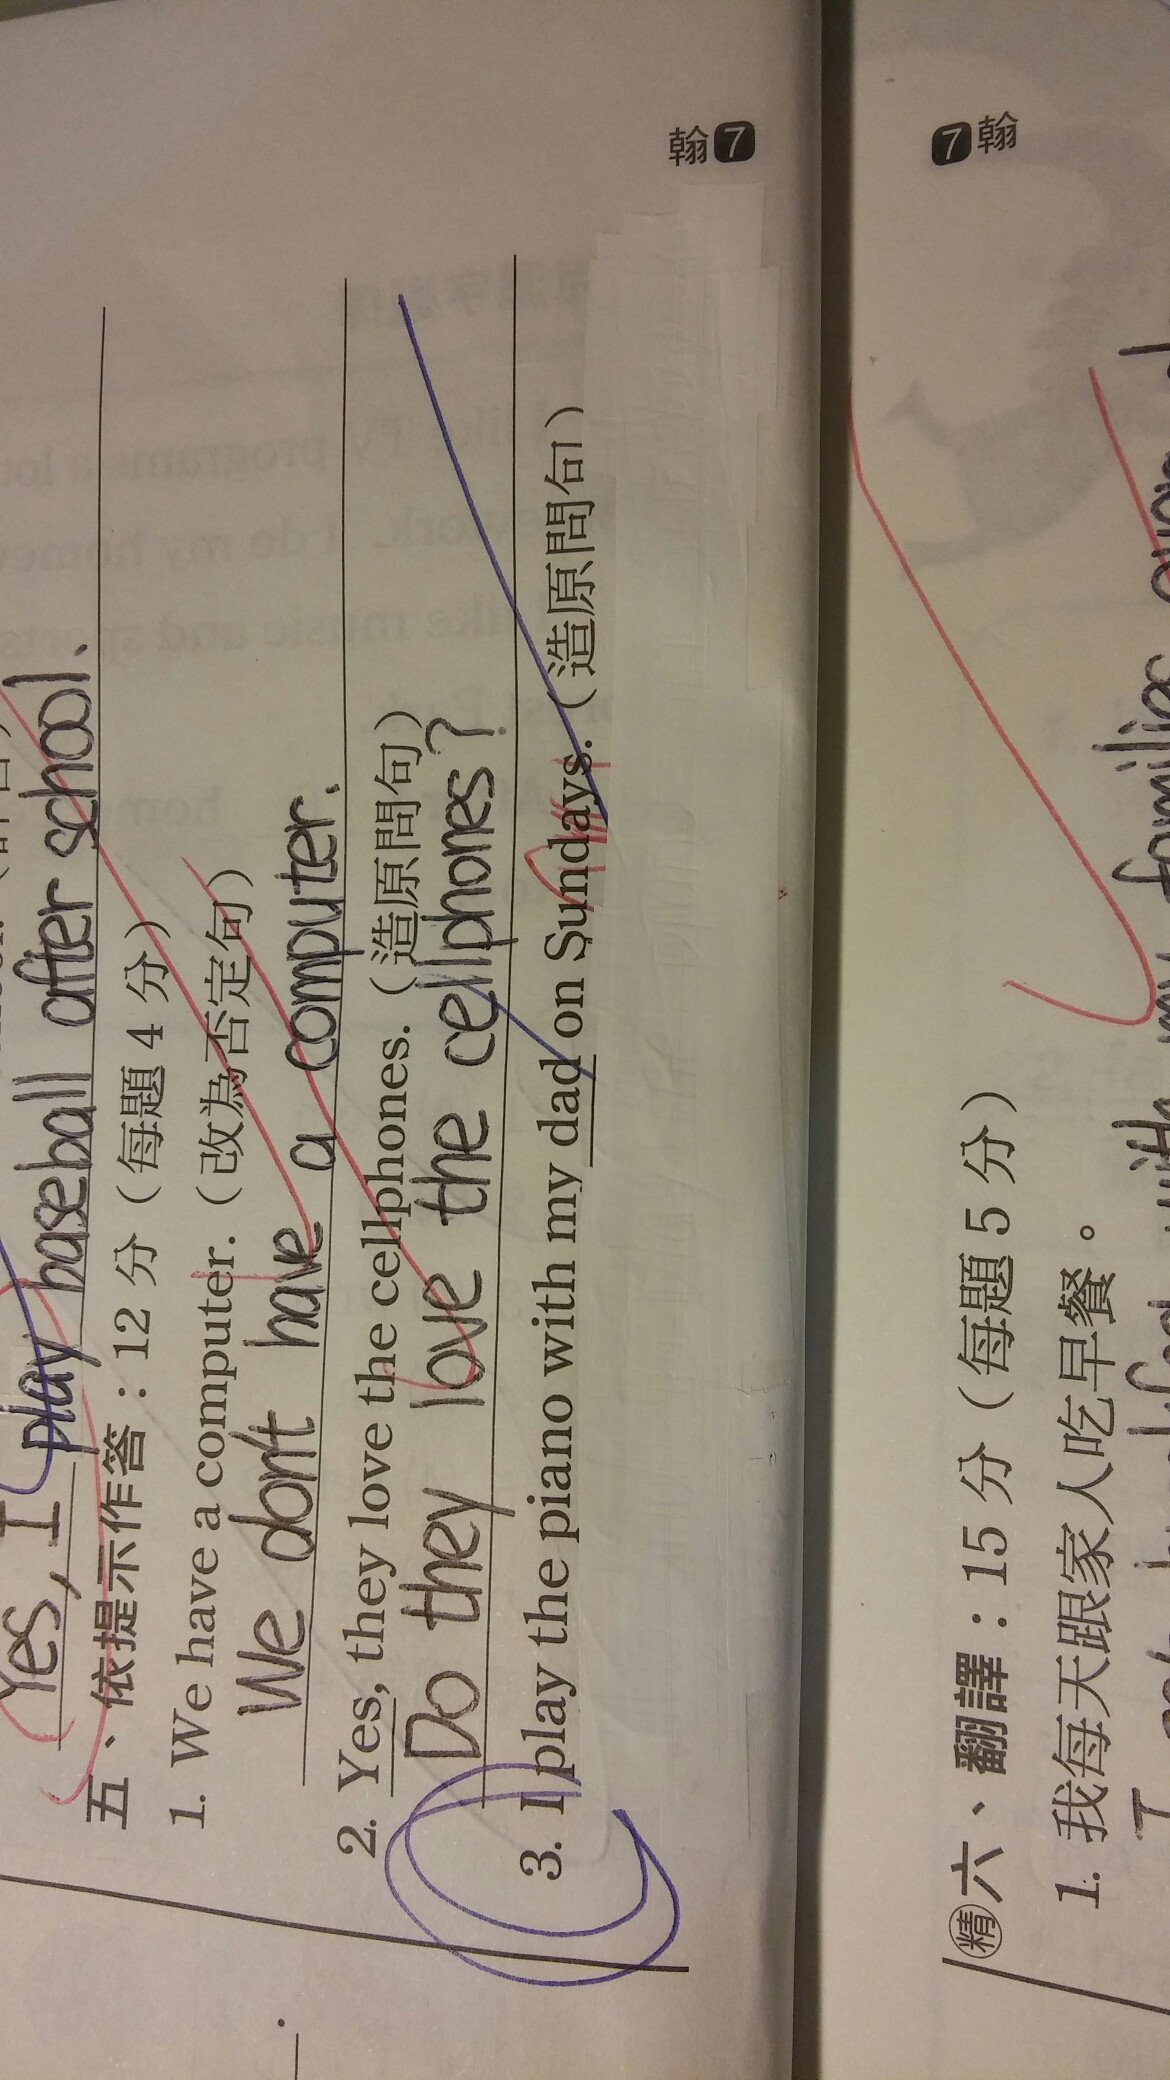 Yes, I play baseball after school.
五、依提示作答：12 分（每題 4 分）
1. We have a computer.（改為否定句）
We don't have a computer.
2. Yes, they love the cellphones.（造原問句）
Do they love the cellphones?
3. I play the piano with my dad on Sundays.（造原問句）
翰 7
7 翰
精 六、翻譯：15 分（每題 5 分）
1. 我每天跟家人吃早餐。
I with my families